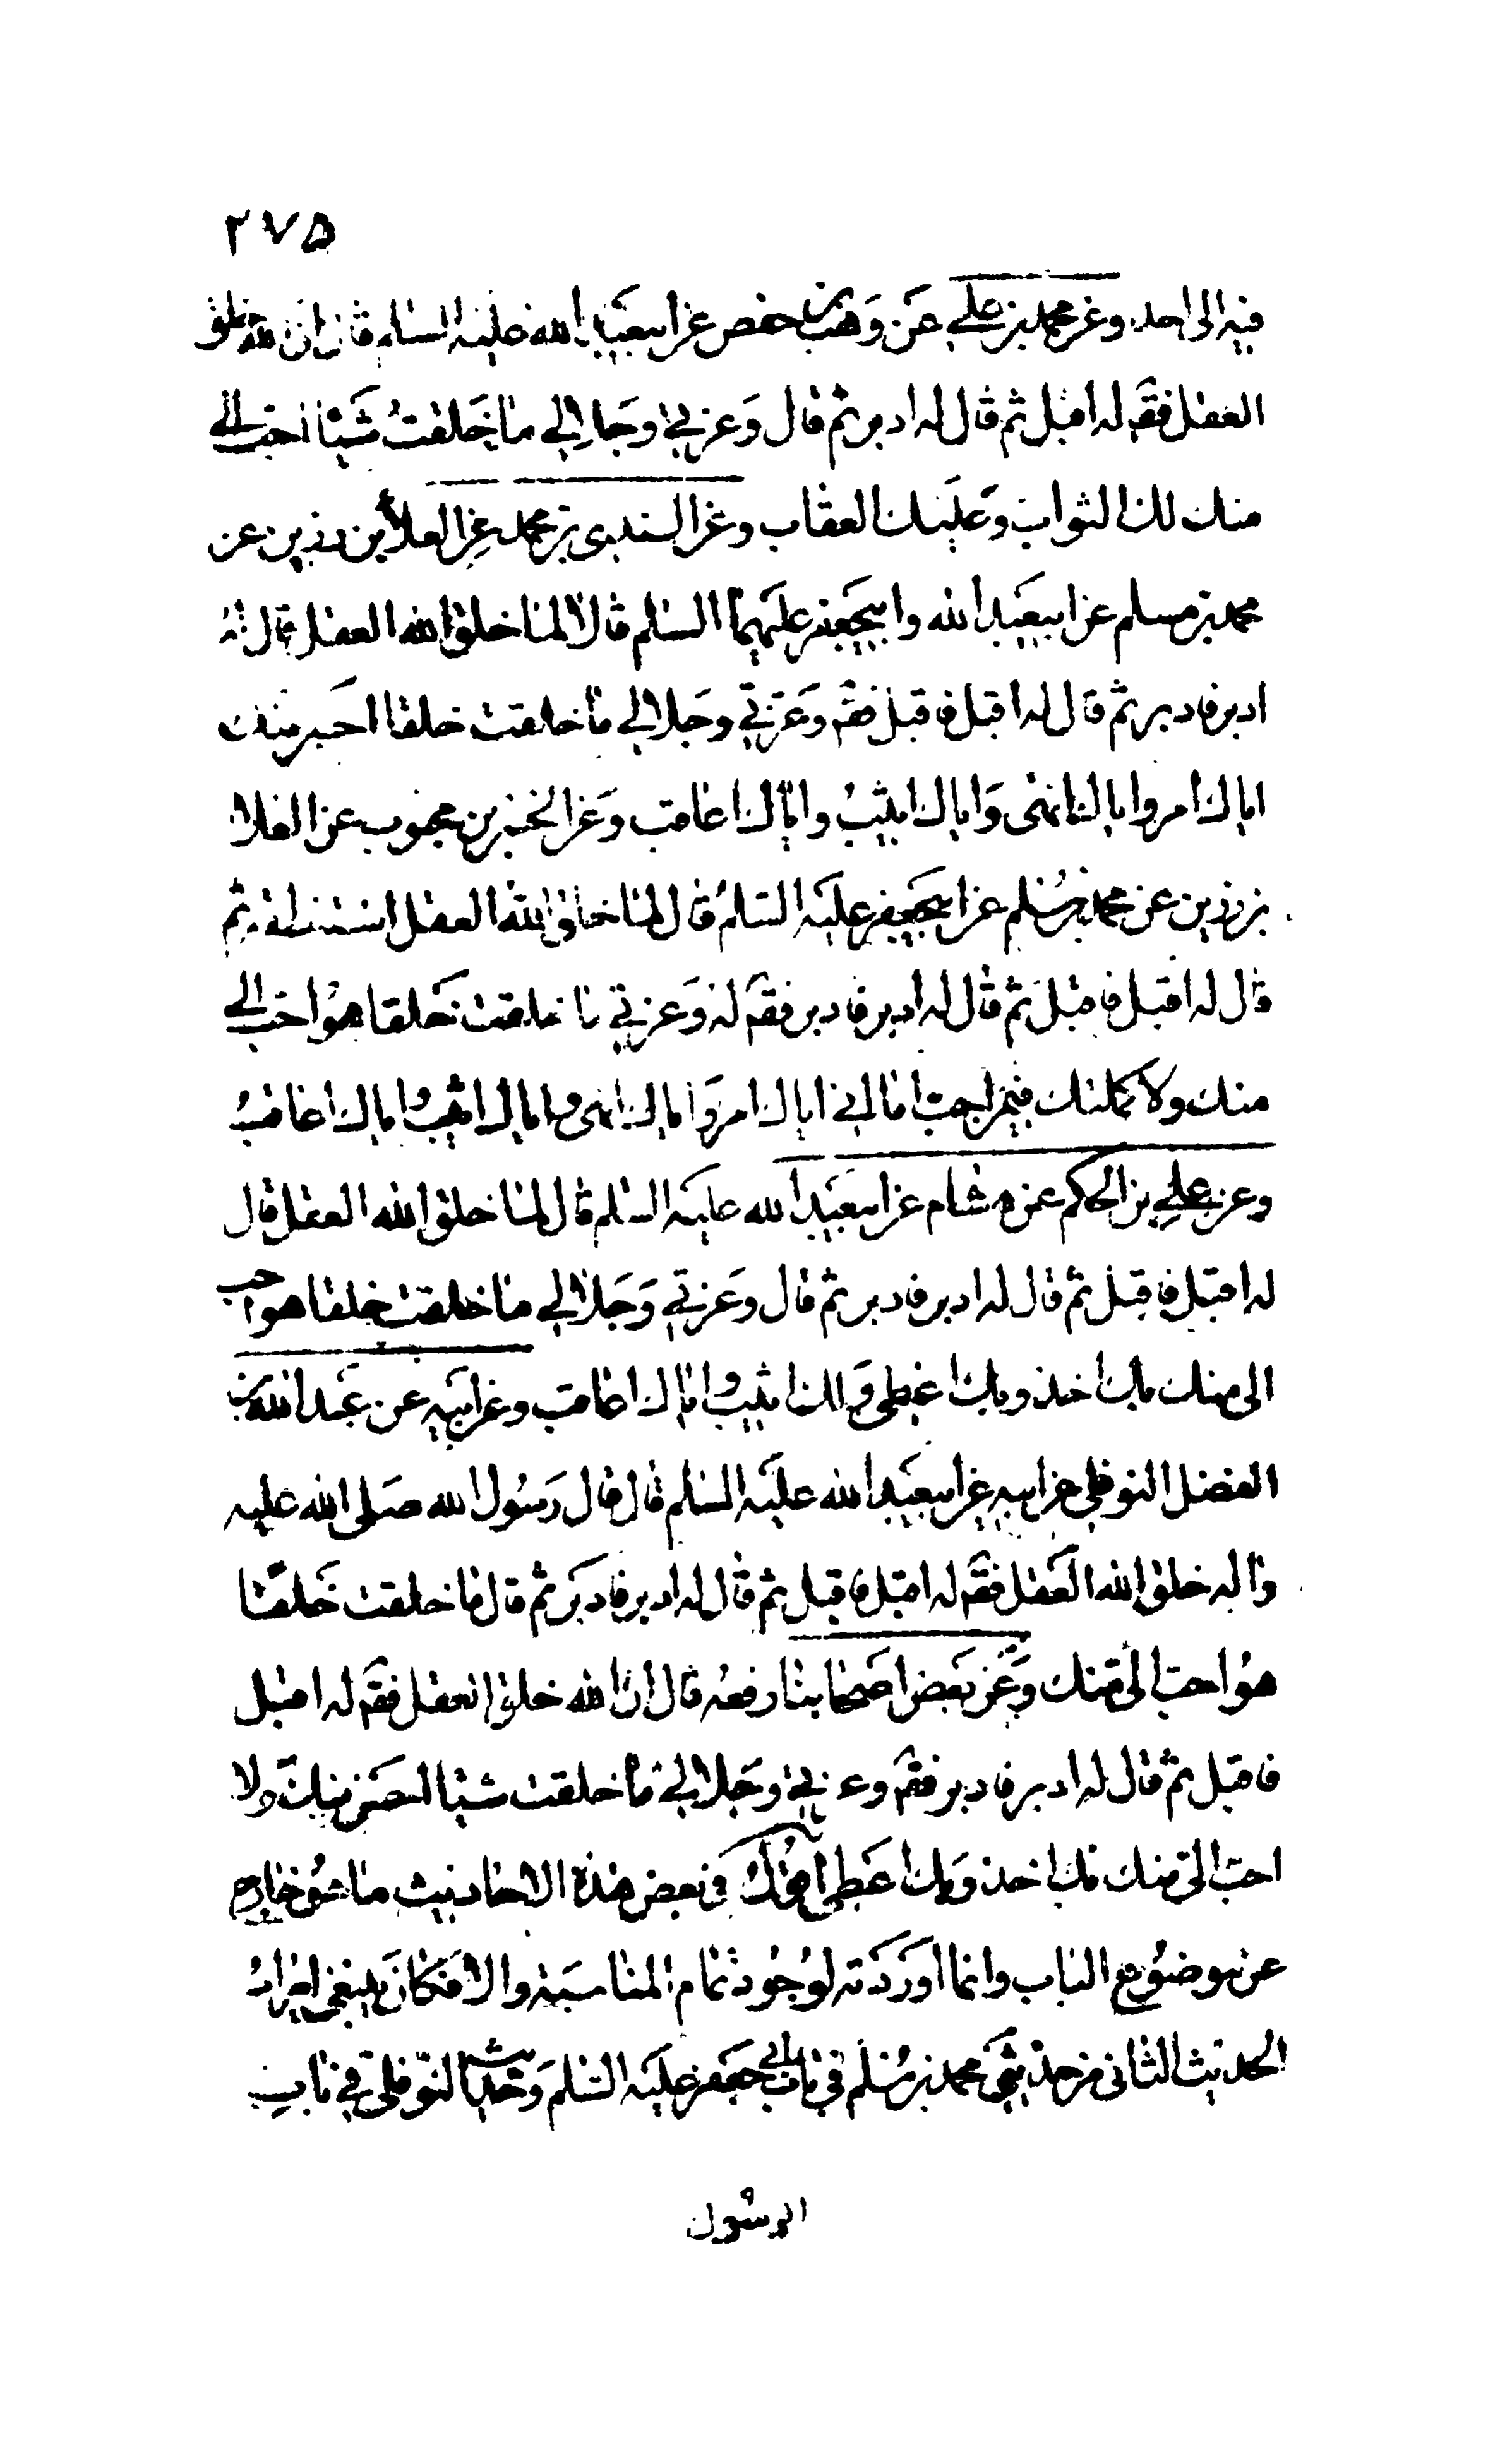 ٢٧۵
فيه الى احد وعن محمد بن علي عن وهب بن حفص عن ابيعبد الله عليه السلام قال ان الله خلق
العقل فقم له اقبل ثم قال له ادبر ثم قال وَعزتي وجَلالي ما خَلقتُ شَيئا احب الي
منك لك الثواب وَعَليك العقاب وعن السندي بن محمد عن العلاء بن رزين عن
محمد بن مسلم عن ابيعَبد الله وابيجَعفر عليهما السلم قالا لما خلق الله العقل قال له
ادبر فادبر ثم قال له اقبل فاقبل فقم وَعزتي وجَلالي ما خلقت خلقا احسَن منك
اياك امر واياك انهى وَاياك اثيبُ واياك اعاقب وَعن الحسن بن محبوب عن العلا
بن رزين عن محمد بن مُسلم عن ابيجَعفر عليَه السَلم قال لما خلق الله العقل استنطقه ثم
قال له اقبل فاقبل ثم قال له ادبر فادبر فقم له وَعزتي ما خلقت خَلقا هُو احَب الي
منك ولا اكملتك الا فيمن احب اما اني اياك امر وَاياك انهى واياك اثيب واياك اعاقبُ
وعن علي بن الحكم عن هشام عن ابيعَبد الله عليَه السلم قال لما خلق الله العقل قال
له اقبل فاقبل ثم قال له ادبر فادبر ثم قال وَعزتي وَجَلالي ما خلقت خلقا هو احب
الى منك بك اخذ وبك اعطى وَاياك اثيب واياك اعاقب وعن ابيَه عن عَبد الله بن
الفضل النوفلي عن ابيه عن ابيعَبد الله عليَه السلم قال قال رَسُول الله صَلى الله عليه
واله خلق الله العَقل فقم له اقبل فاقبل ثم قال له ادبر فادبَر ثم قال ما خلقت خَلقا
هُو احب اليَّ منك وَعَن بَعض اصحَابنا رفعه قال ان الله خلق العقل فقم له اقبل
فاقبل ثم قال له ادبر فادبر فقم وعزتي وجَلالي ما خلقت شيئا احسَن منك ولا
احبّ اليّ منك بك اخذ وَبك اعَطي اقُول في بعض هذه الاحاديث ما هُو خارج
عن موضُوع الباب وانما اورَدَته لوجُود تمام المناسَبة والا فكانَ ينبغي ايراد
الحديث الثاني من حديثي محمد بن مُسلم في باب ابي جَعفر عليَه السَلم وَحديث النَوفلي في باب
الرسول